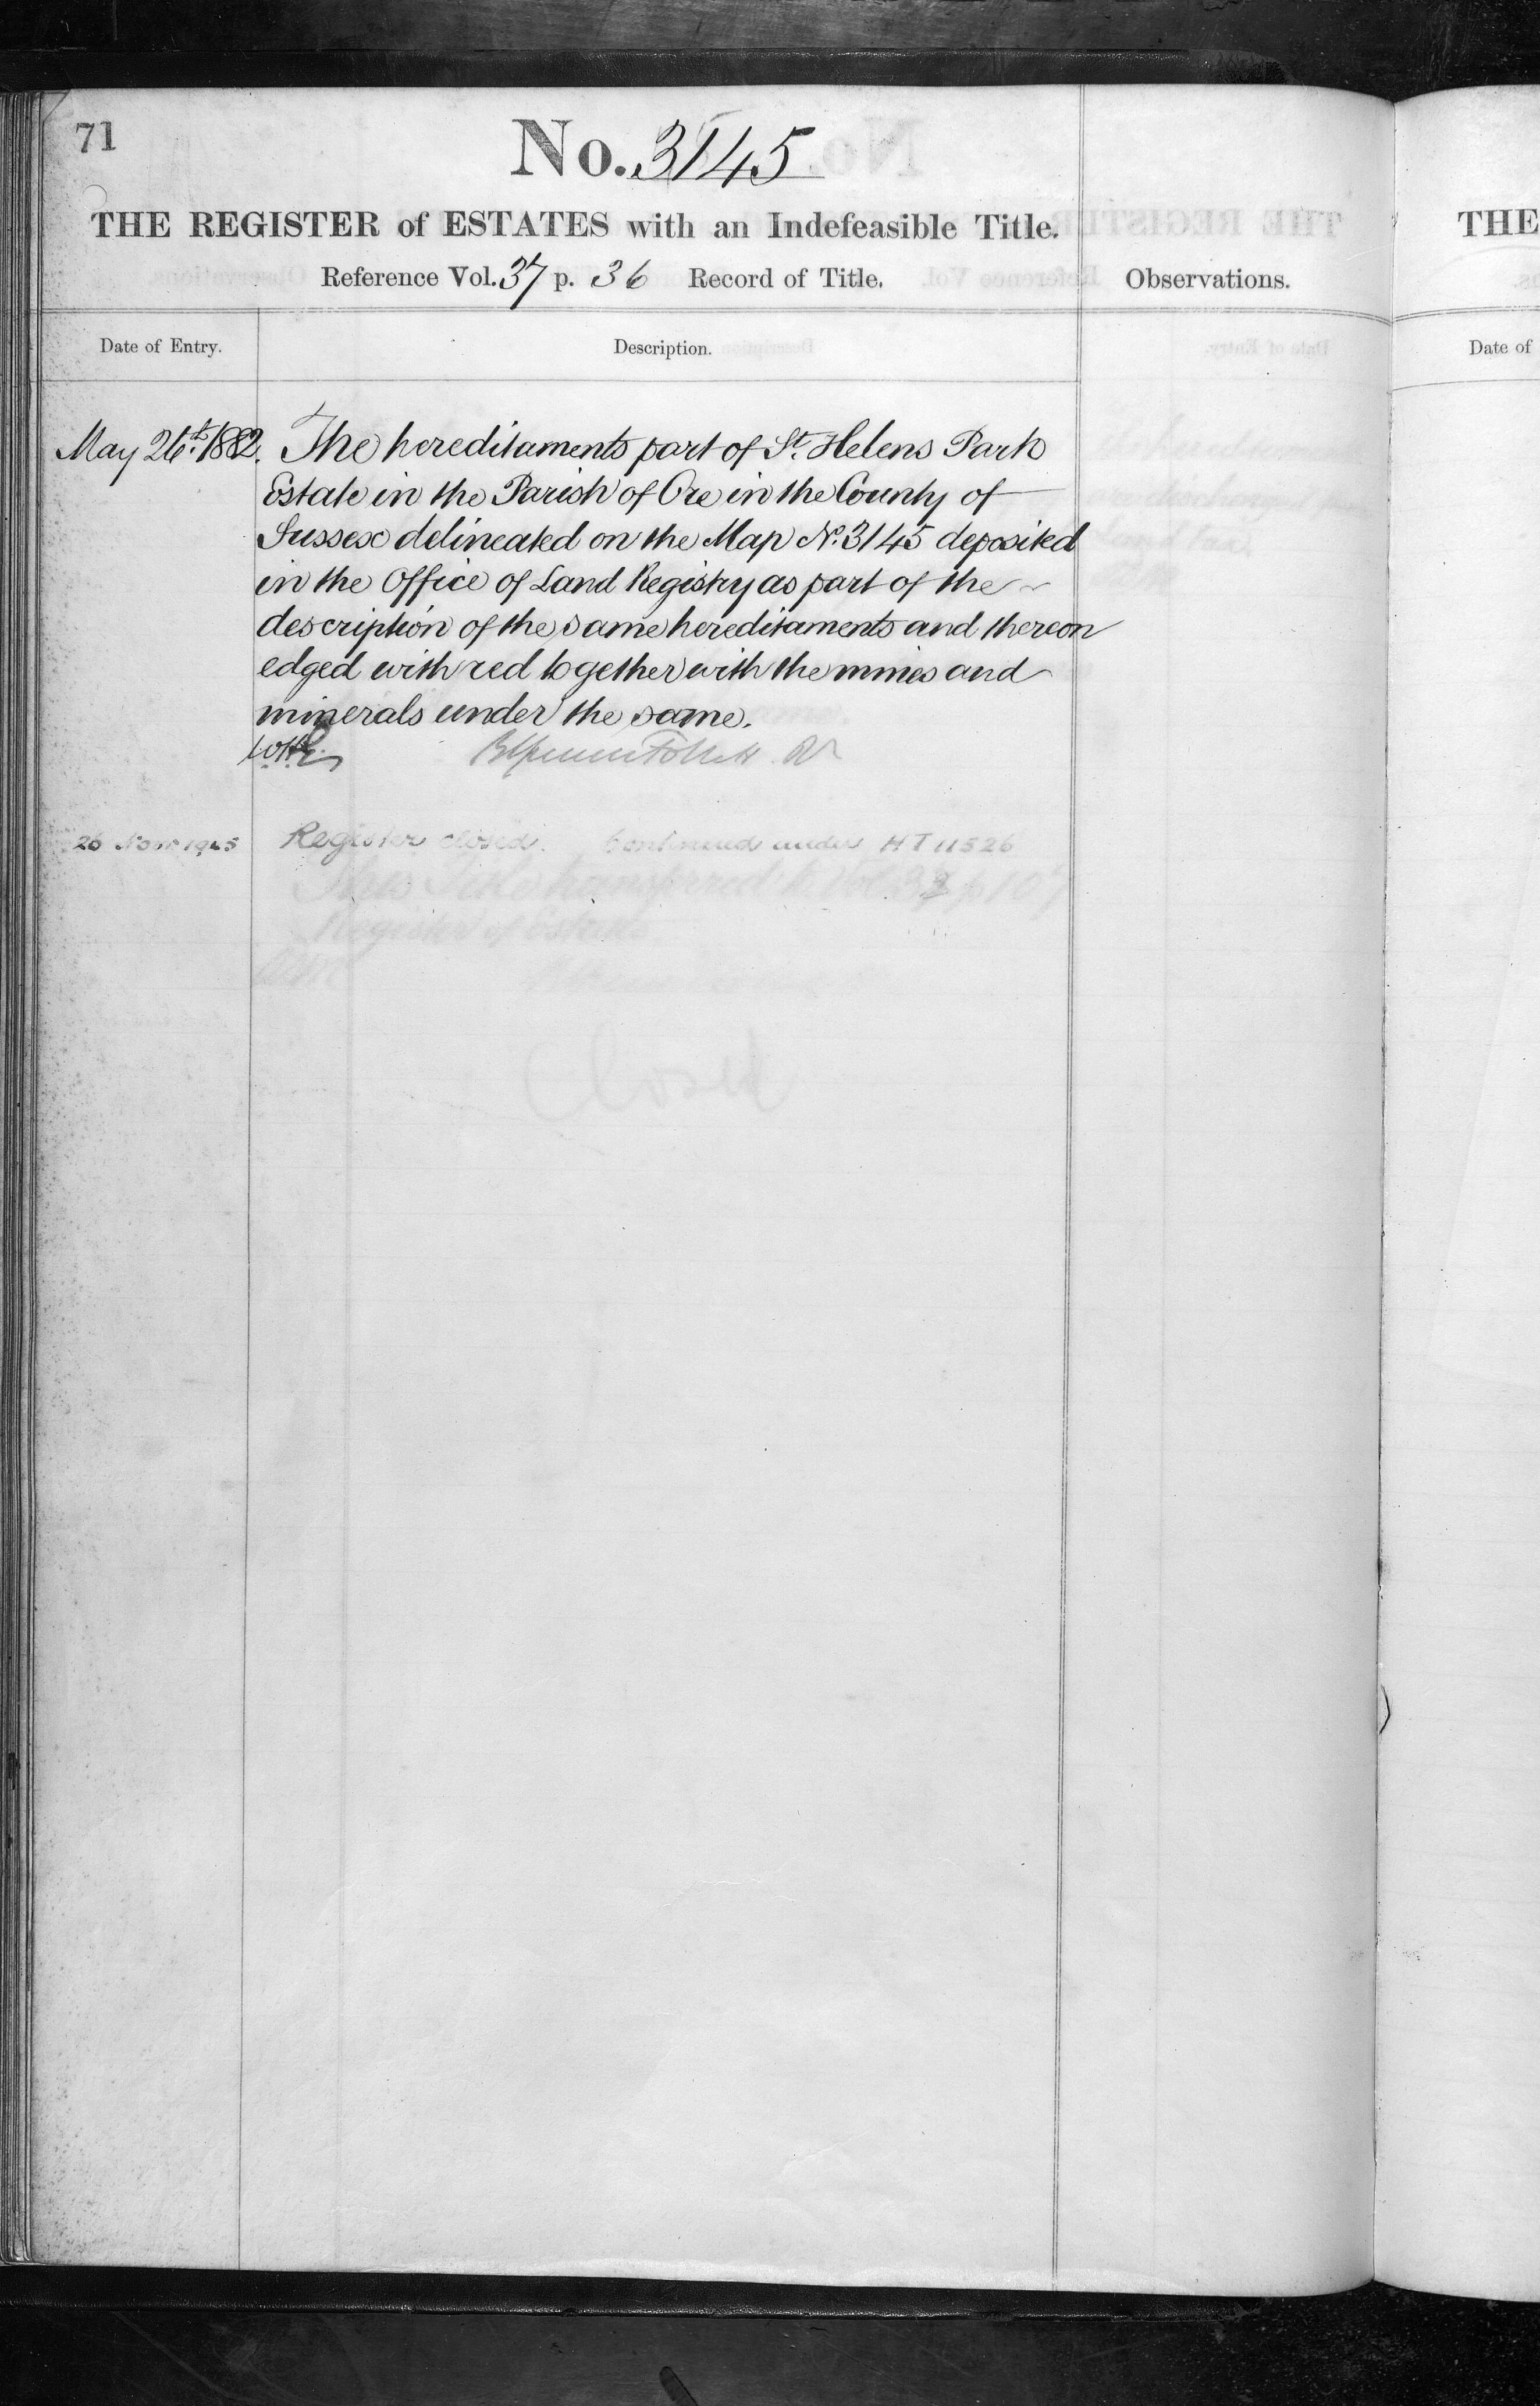 71
No. 3145
THE REGISTER of ESTATES with an Indefeasible Title.
Reference Vol. 37 p. 36 Record of Title.
Observations.
Date of Entry.
Description.
May 26th 1882. The hereditaments part of St. Helens Park
Estate in the Parish of Ore in the County of
Sussex delineated on the Map No. 3145 deposited
in the Office of Land Registry as part of the
description of the same hereditaments and thereon
edged with red together with the mines and
minerals under the same.
26 Novr 1925 Register closed. Continued under HT 11526
This Title transferred to Vol
Register of Estates
Closed
THE
Date of